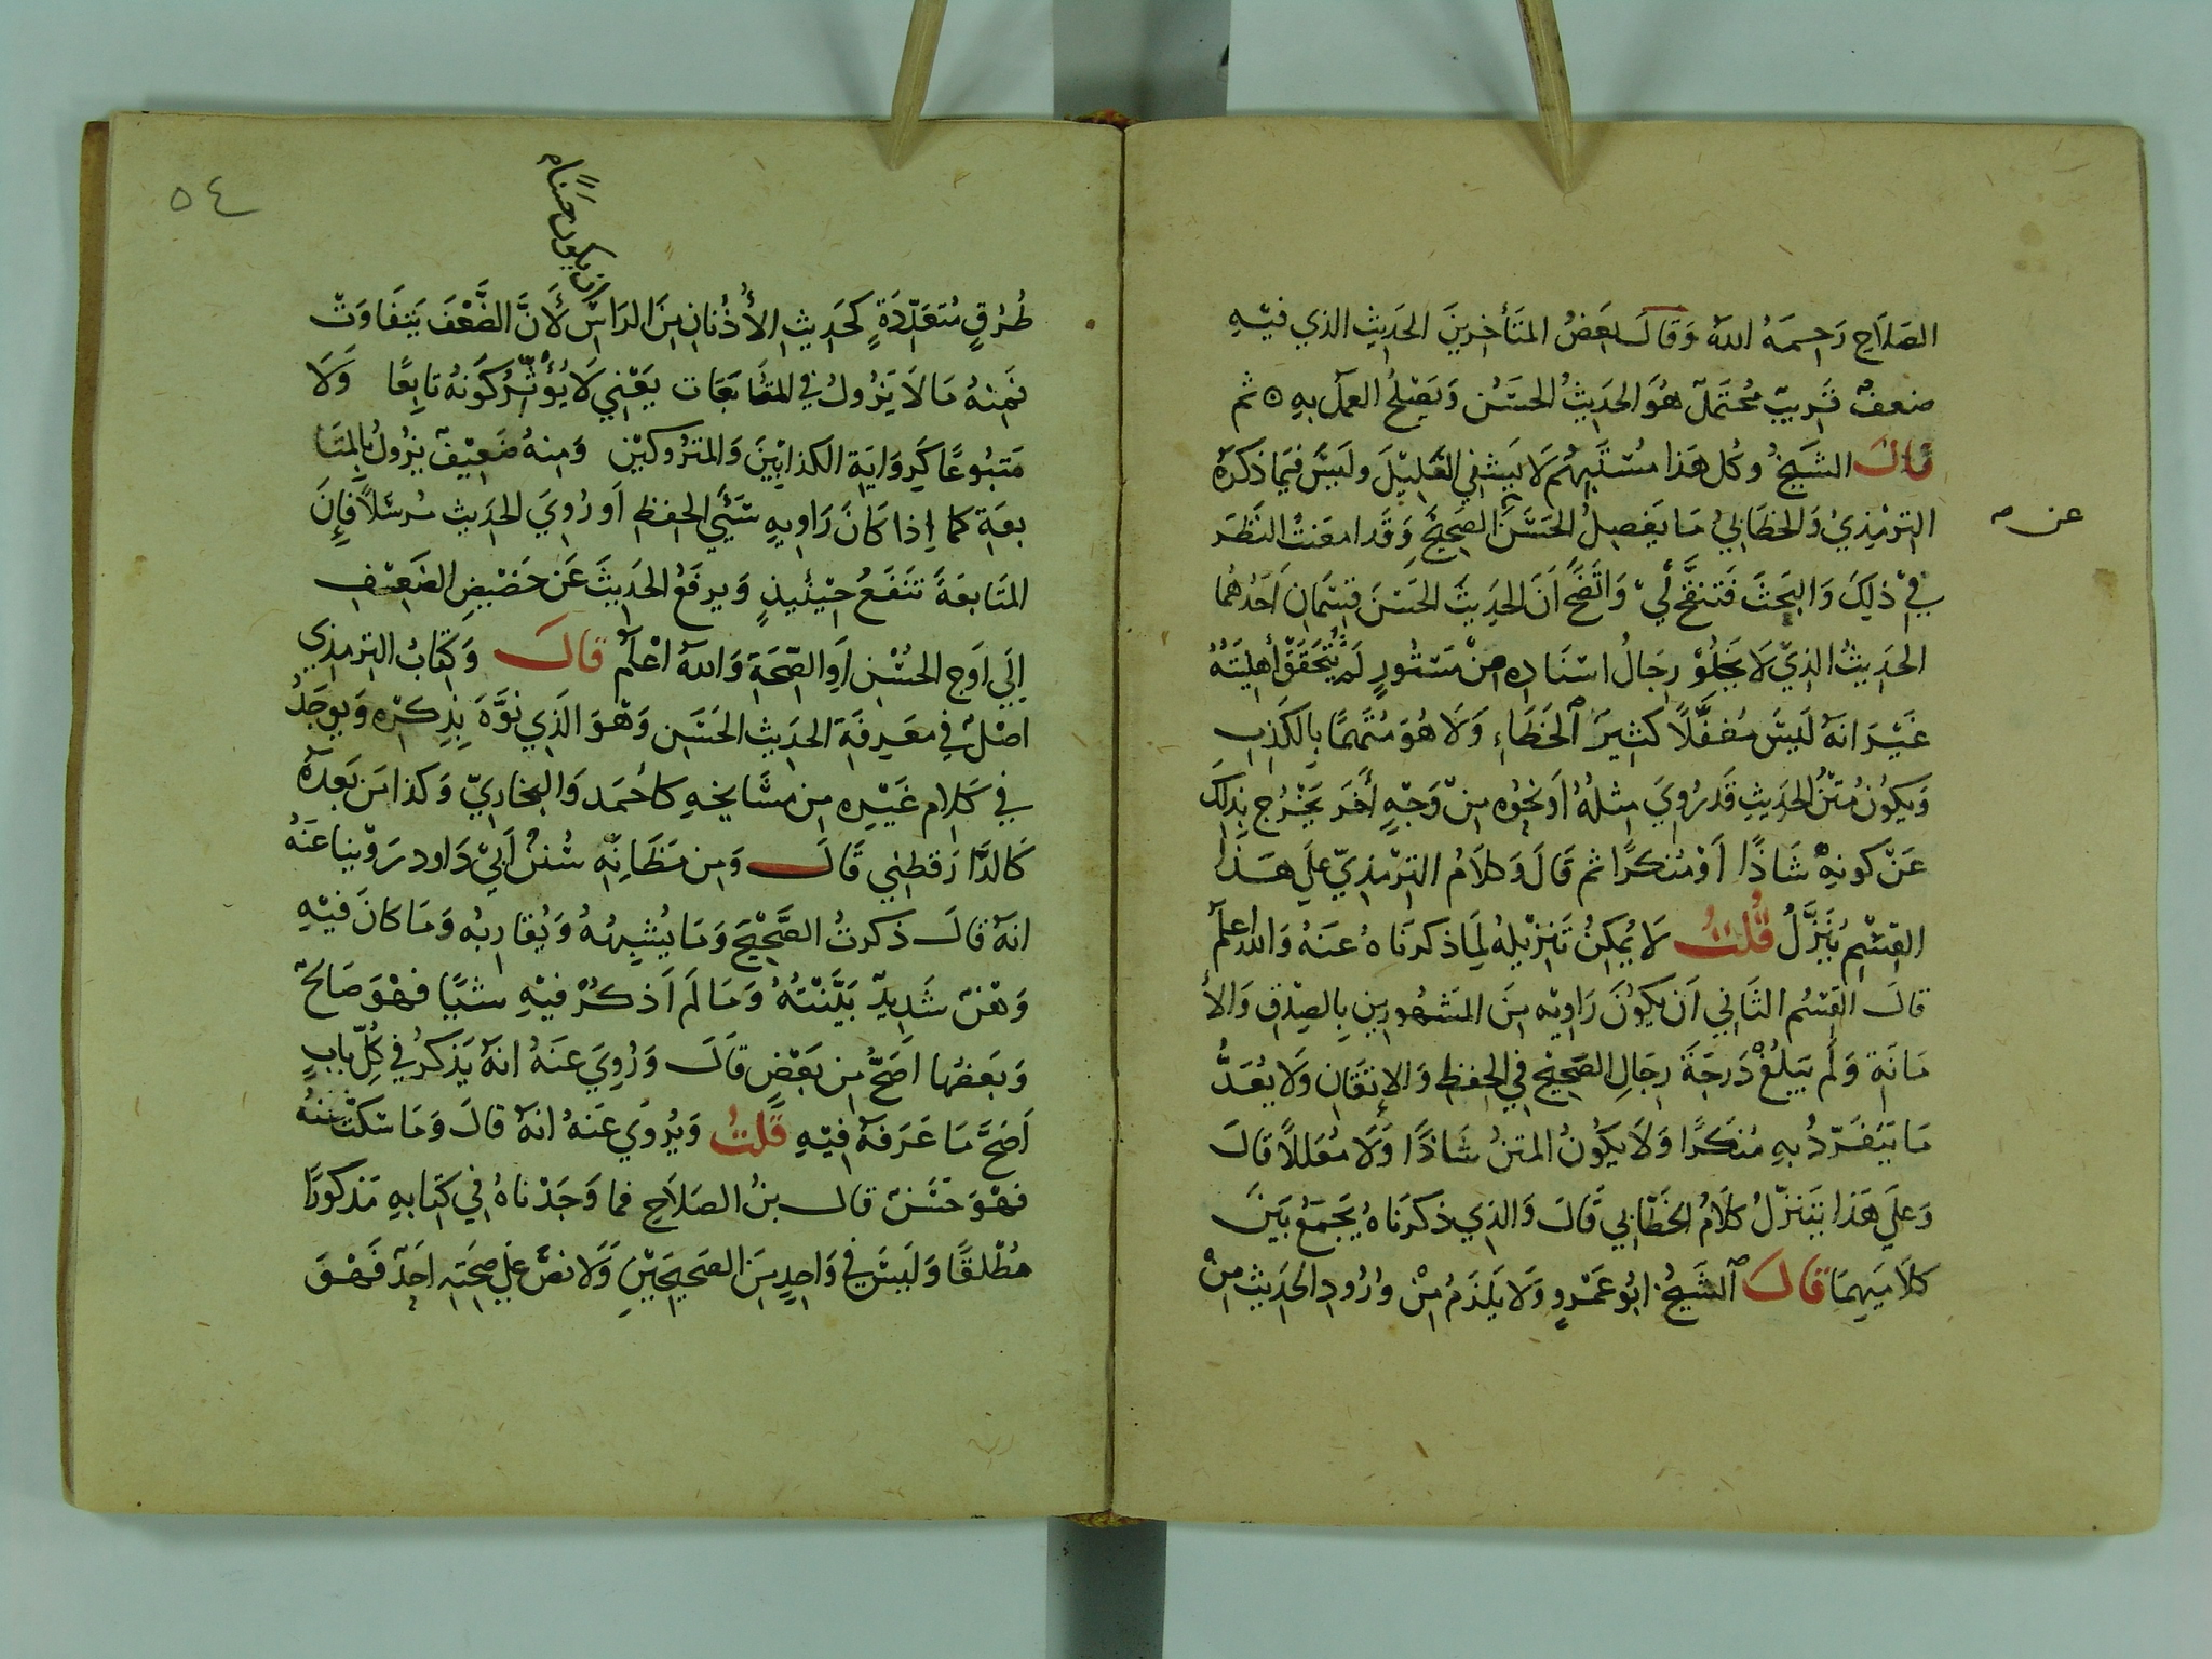 الصَلاَحِ رَحِمَهُ اللهُ وَقَالَ بَعضُ المتَأخِرِينَ الحَدِيثِ الذي فيْهِ
ضعفٌ قَرِيبٌ مُحْتَمَلٌ هُوَ الحَدِيثُ الحسَنُ وَيَصْلحُ العمَل بِهِ ه ثم
قالَ الشَيخُ وكُل هَذا مُسْتَبْهَم لَا يَشفي الغَلِيْلَ ولَيسَ فيَما ذكَرَهُ
الترْمِذيُ وَالخطَابيُ مَا يَفصِلُ الحَسَنَ الصَحِيحَ وَقَد امعَنتُ النَظرَ
عن صـ
فِيْ ذلِكَ وَالبَحثَ فَتنقَّحَ لِيْ وَاتّضَحَ اَنَ الحَدِيثَ الحَسَنَ قِسْمَانِ اَحَدُهُما
الحَدِيثُ الذِيْ لَا يَخلُوْ رِجَالُ اسْنَادِهِ مِنْ مَسْتُورٍ لَمْ يُتَحَقَقْ أهلِيَتُهُ
غَيْرَ انهُ لَيسَ مُغَفَّلًا كثِيرَ الخَطَاءِ وَلَا هُوَ مُتَهَمًا بِالكَذِبِ
وَيكُونُ مَتْنُ الحَدِيثِ قَد رُوِيَ مِثلُهُ اَو نحْوُهُ مِنْ وَجْهٍ أخَر يَخْرُج بِذلكَ
عَنْ كونِهِ شَاذًا اَوْ مُنكرًا ثم قَالَ وَكلَامُ الترْمِذيّ عَلَي هَذَا
القِسْمِ يُنَزَّلُ قُلتُ لَا يُمْكِنُ تَنْزِيلهُ لِمَا ذكرنَاهُ عنَهُ وَالله اعلم
قالَ القِسْمُ الثَانِي اَن يَكوُنَ رَاوِيْهِ مِنَ المَشهُورِينِ بِالصِدْقِ وَالأ
مَانَةِ وَلَم يَبلُغْ دَرجَةَ رِجَالِ الصَحِيْحِ في الحِفظِ وَالإتقَانِ وَلا يُعَدُّ
مَا يَنْفَرِدُ بهِ مُنكَرًا وَلَا يكوُنُ المتنُ شَاذًا وَلَا مُعَللًا قالَ
وَعَلَي هَذا يَتَنزّلُ كلَامُ الخَطَابِي قَالَ وَالذِي ذكَرنَاهُ يَجمَعُ بَينَ
كلَامَيهِمَا قالَ الشَيخُ ابُو عَمْرٍو وَلَا يَلزَمُ مِنْ وُرُودِ الحَدِيثِ مِنْ
٥٤
طُرُقٍ مُتعَدّدَةٍ كحَدِيثِ الأُذُنانِ مِنَ الرَاسِ لأَنَّ الضَّعْفَ يَتفَاوَتُ
ان يكون حَسَنًا ه
فمِنهُ مَا لَا يَزُولُ في المتَابَعَات يَعْنِي لَا يُؤَثِّرُ كَونهُ تَابِعًا وَلَا
مَتبُوعًا كَرِوَايَةِ الكذابِيْنَ وَالمتْرُوكيْنِ وَمِنهُ ضَعِيْفٌ يزُولُ بِالمتَا
بعَةِ كما إذا كَانَ رَاوِيهِ سَيّئَ الحِفظِ اَو رُوِيَ الحَدِيث مُرسَلًا فَإِنَ
المتَابعَةَ تنفَعُ حِيْنئِيذٍ وَيرفَعُ الحَدِيثَ عَن حَضيْضِ الضَعِيْفِ
إِلَي اَوجِ الحُسْنِ اَوِ الصِّحَةِ وَاللهُ اعْلَم قالَ وَكِتَابُ الترمذي
اصْلٌ في مَعْرِفَةِ الحدِيثِ الحَسَنِ وَهْوَ الَذي نَوَّهَ بِذِكرْهِ وَيوجَدُ
في كَلَامِ غَيْرِهِ مِن مشَايخهِ كأحْمَد وَالبخَاريّ وَكذا مَن بَعدَهُ
كَالدَّارَقطِني قَالَ وَمِن مَظَانِّهِ سُننُ اَبِيْ دَاود رَوَّينا عَنَهُ
انهُ قالَ ذكرتُ الصَّحِيْحَ وَمَا يُشبِهُهُ وَيُقَارِبُه وَمَا كانَ فيْهِ
وَهْنٌ شَدِيدٌ بَيَّنْتهُ وَمَا لَم اَذكُرْ فيْهِ شَيْأ فهْوَ صَالحٌ
وَبَعضُها اَصَحُّ مِن بَعْضٍ قَالَ وَرُوِيَ عنَهُ انهُ يَذكرُ في كُلِّ بابٍ
اَصَحَّ مَا عَرَفهُ فيْهِ قُلتُ وَيُرْوَي عَنهُ انهُ قالَ وَمَا سَكتُّ عنهُ
فهْوَ حَسَنٌ قال بنُ الصَلَاحِ فما وَجَدْناهُ في كِتابهِ مَذكورًا
مُطْلقًا وَلَيسَ في وَاحِدٍ مِنَ الصَحِيحَيْنِ وَلَا نصَّ عَلَي صِحَتِه اَحَدٌ فَهْوَ